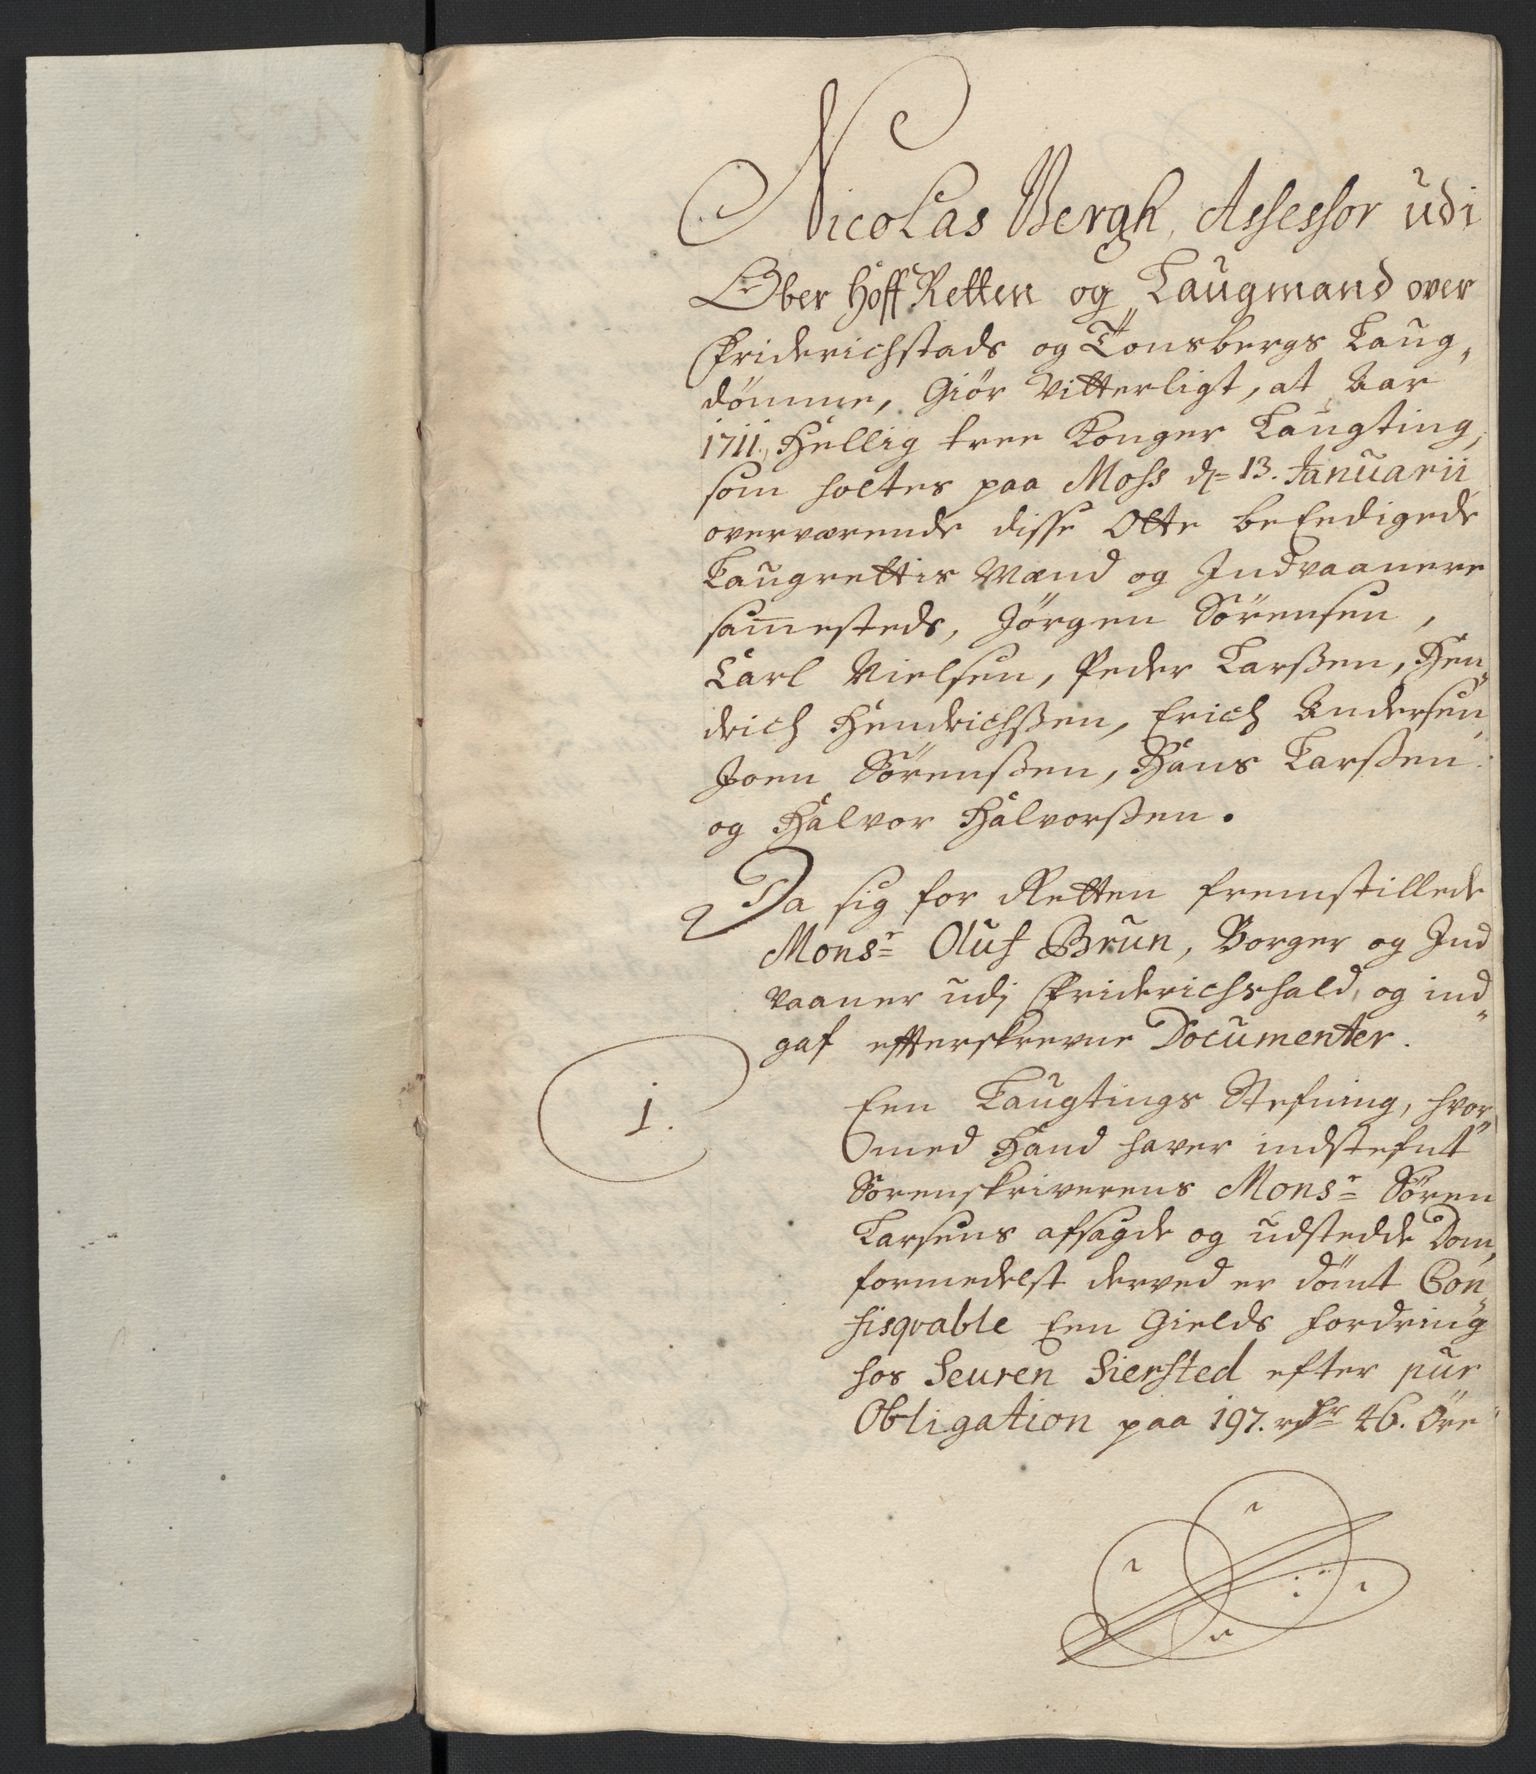 Nicolas Bergh, Assessor udi
Ober Hoff Retten og Laugmand over
Friderichstads og Tonsbergs Laug„
dömme, Giör Vitterligt, at Aar
1711, Hellig tree Konger Laugting,
som holtes paa Moss d= 13. Januarii
overværende disse Otte beEedigede
Laugrettis Mænd og Indvaanere
sammesteds, Jörgen Sörensen,
Carl Nielsen, Peder Larssen, Hen„
drich Hendrichssen, Erich Andersen
Joen Sörenssen, Hans Larssen
og Halvor Halvorssen.
Da sig for Retten fremstillede
Monsr= Oluf Brun, Borger og Ind
vaaner udj Friderichshald, og ind„
gaf efterskrevne Documenter.
1.
Een Laugtings Stefning, hvor„
med Hand haver indstefnt
Sorenskriverens Monsr= Sören
Larsens afsagde og udstedde Dom,
formedelst derved er dömt Con„
fisqvable Een Gields fordring
hos Seuren Siersted efter pur
Obligation paa 197. rdr= 46. Öre